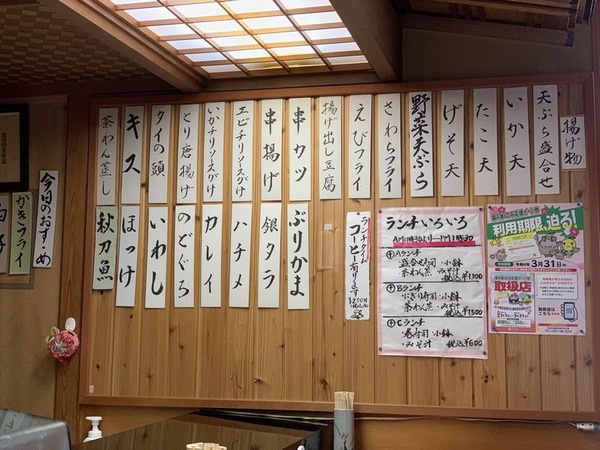 揚げ物
天ぷら盛合せ
いか天
たこ天
げそ天
野菜天ぷら
さわらフライ
えびフライ
揚げ出し豆腐
串カツ
串揚げ
エビチリソースがけ
いかチリソースがけ
とり唐揚げ
タイの頭
キス
茶わん蒸し
ぶりかま
銀タラ
ハチメ
カレイ
のどぐろ
いわし
ほっけ
秋刀魚
今日のおすすめ
かきフライ
白子
ランチタイム
コーヒー有ります
ランチいろいろ
Aランチ
盛合せ寿司 小鉢
茶わん蒸 みそ汁
税込み¥1,100
Bランチ
にぎり寿司 小鉢
茶わん蒸・みそ汁
税込み¥1300
Cランチ
巻寿司 小鉢
・みそ汁 税込み¥600
利用期限、迫る!
令和4年3月31日
取扱店